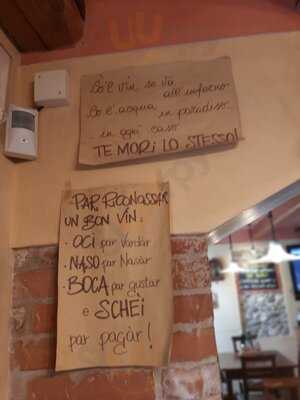 Se è vin, se va all'inferno
Se è acqua in paradiso
in ogni caso
TE MORi LO STESSO!
PAR RiCONOSSAR
UN BON VIN:
· OCi par Vardàr
· NASO par Nasàr
· BOCA par gustar
e SCHEi
par pagàr!